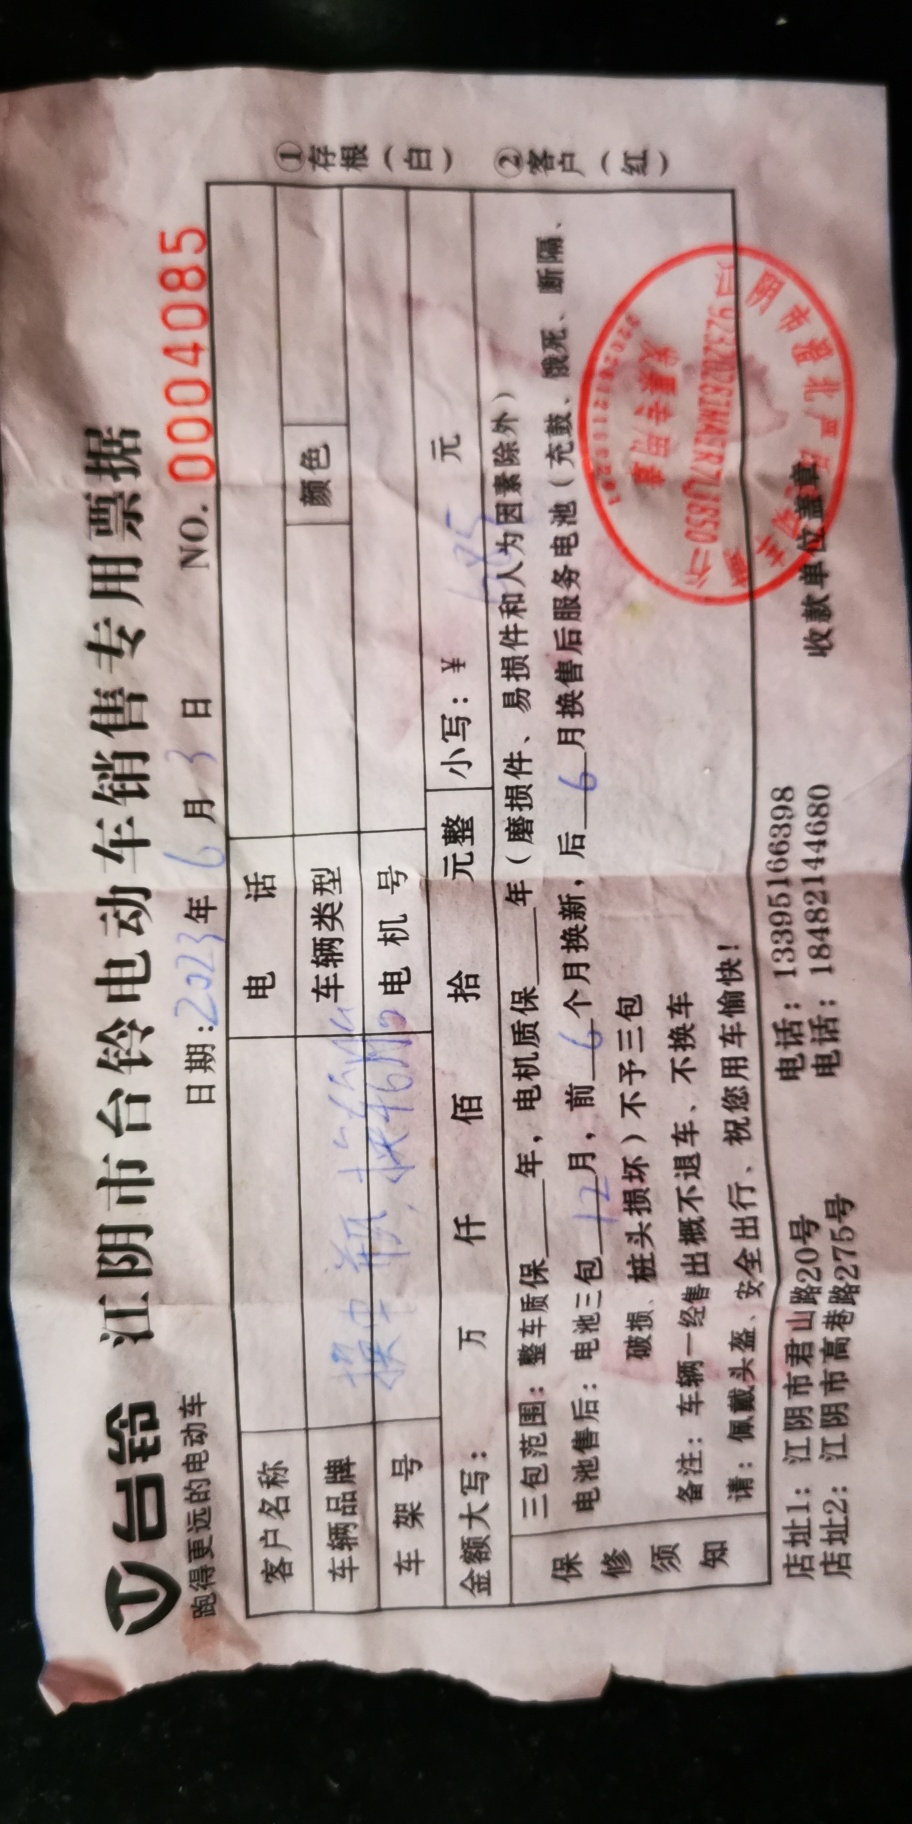 台铃
跑得更远的电动车
江阴市台铃电动车销售专用票据
日期:2023年6月3日 NO.0004085
客户名称 电话
车辆品牌 车辆类型 颜色
车架号 电机号
换中
金额大写: 万 仟 佰 拾 元整 小写:¥ 元
保修须知
三包范围:整车质保___年,电机质保___年(磨损件、易损件和人为因素除外)
电池售后:电池三包12月,前6个月换新,后6月换售后服务电池(充鼓、饿死、断隔、
破损、桩头损坏)不予三包
备注:车辆一经售出概不退车、不换车
请:佩戴头盔、安全出行、祝您用车愉快!
店址1:江阴市君山路20号 电话:13395166398
店址2:江阴市高巷路275号 电话:18482144680
收款单位盖章
①存根(白) ②客户(红)
发票专用章